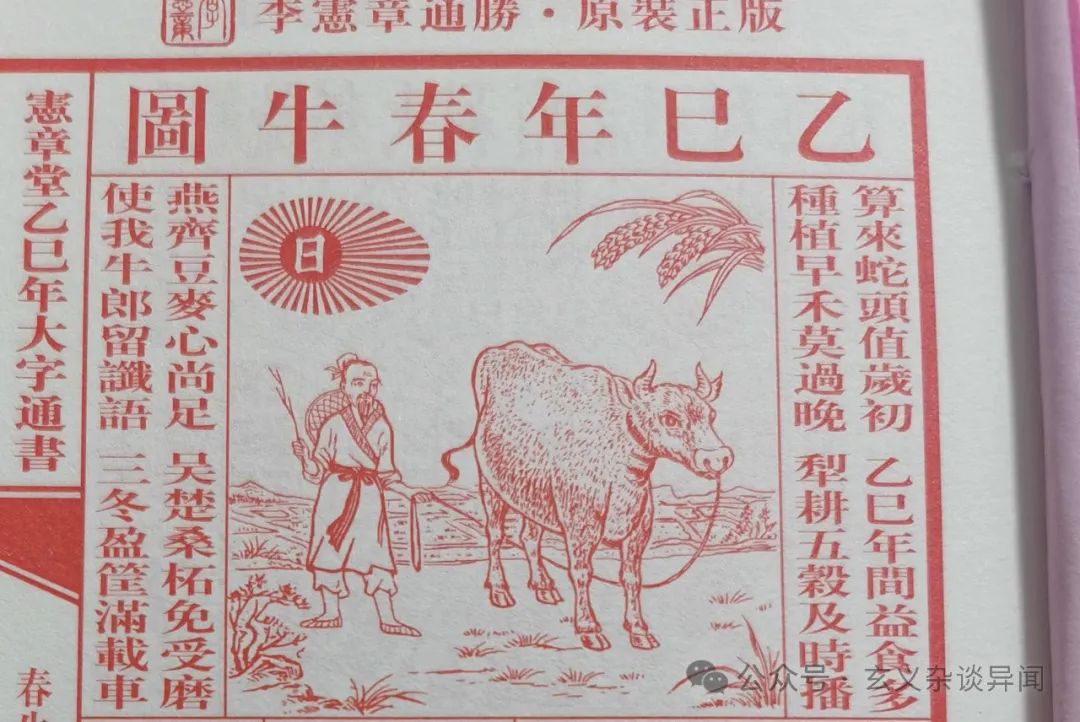 李憲章通勝·原裝正版
乙巳年春牛圖
算來蛇頭值歲初 乙巳年間益食多
種植早禾莫過晚 犁耕五穀及時播
日
燕齊豆麥心尚足 吴楚桑柘免受磨
使我牛郎留讖語 三冬盈筐滿載車
憲章堂乙巳年大字通書
春
公众号·玄义杂谈异闻